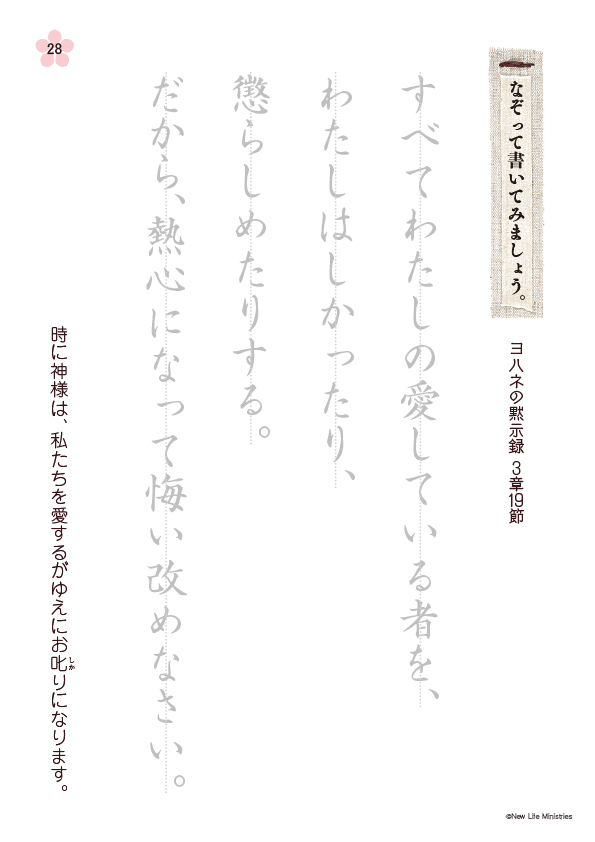 28
なぞって書いてみましょう。
ヨハネの黙示録 3章19節
すべてわたしの愛している者を、
わたしはしかったり、
懲らしめたりする。
だから、熱心になって悔い改めなさい。
時に神様は、私たちを愛するがゆえにお叱りになります。
しか
©New Life Ministries